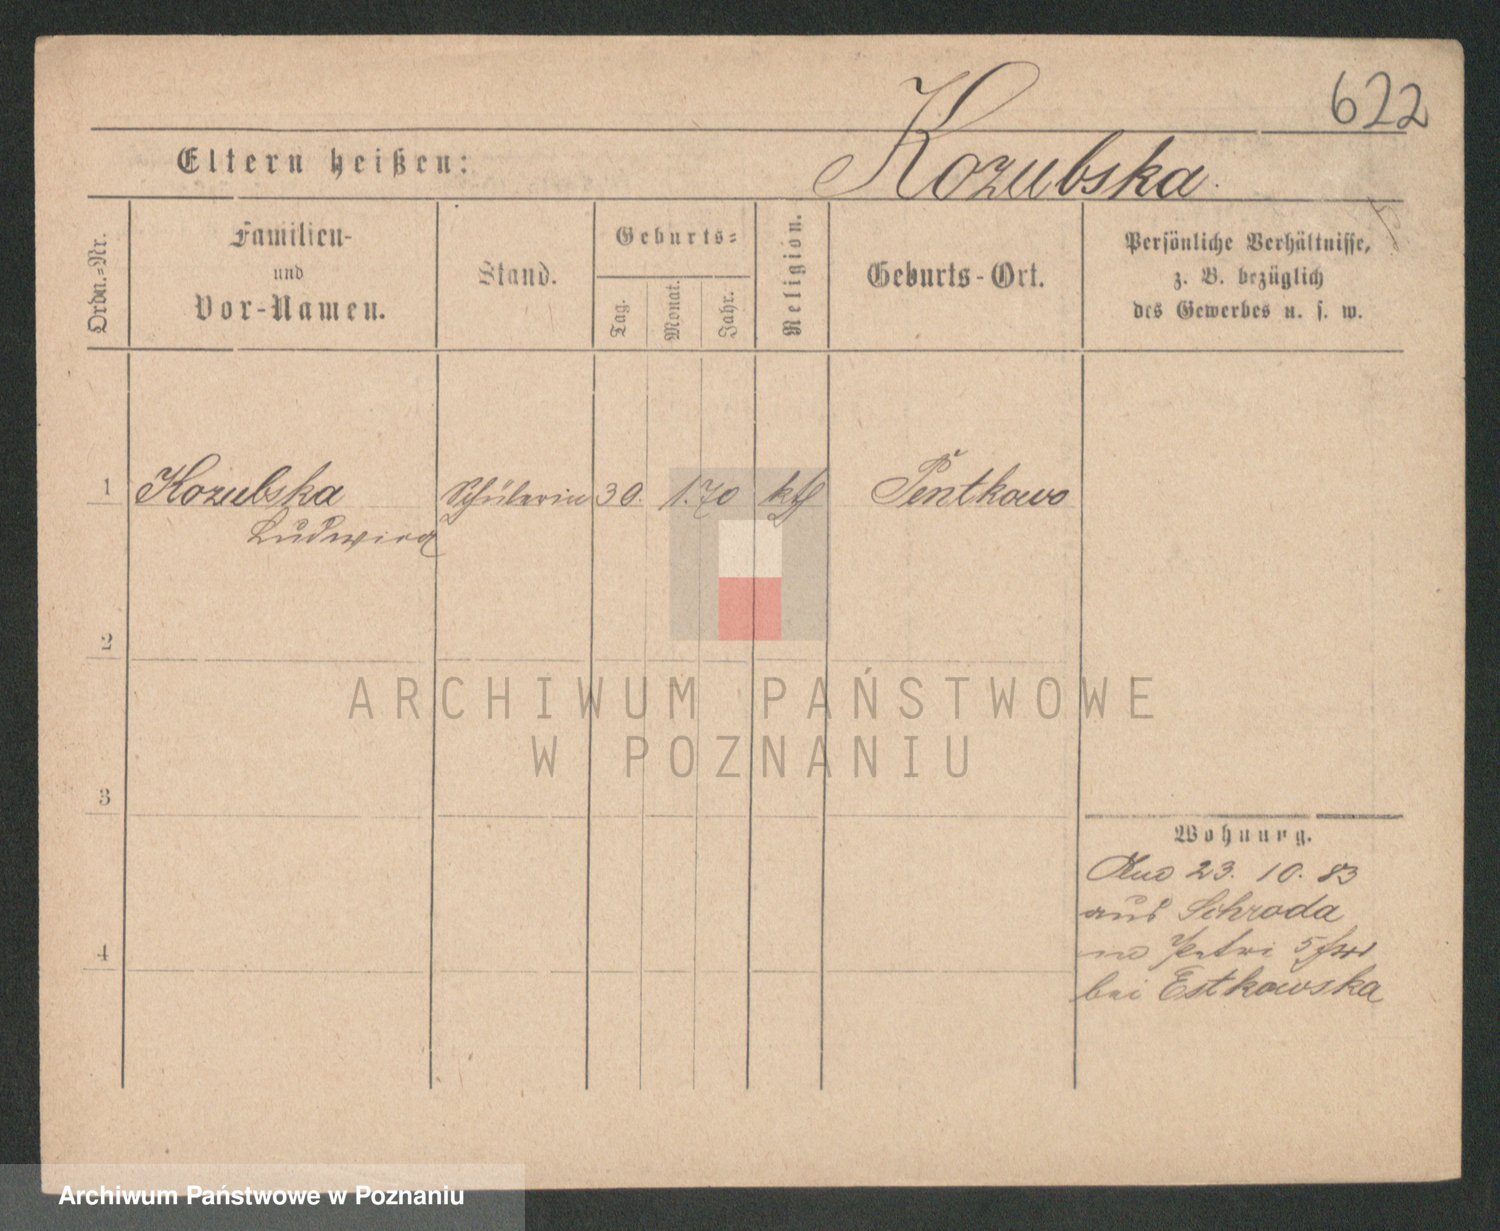 622
Kozubska
Eltern heißen:
Ordn.-Nr.
Familien-
und
Vor-Namen.
Stand.
Geburts-
Tag.
Monat.
Jahr.
Religion.
Geburts-Ort.
Persönliche Verhältnisse,
z. B. bezüglich
des Gewerbes u. s. w.
1 Kozubska Schülerin 30. 1. 70 kth Pentkowo
2
3
4
Wohnung.
23. 10. 83
aus Schroda
Petri 5
bei Estkowska
ARCHIWUM PAŃSTWOWE
W POZNANIU
Archiwum Państwowe w Poznaniu